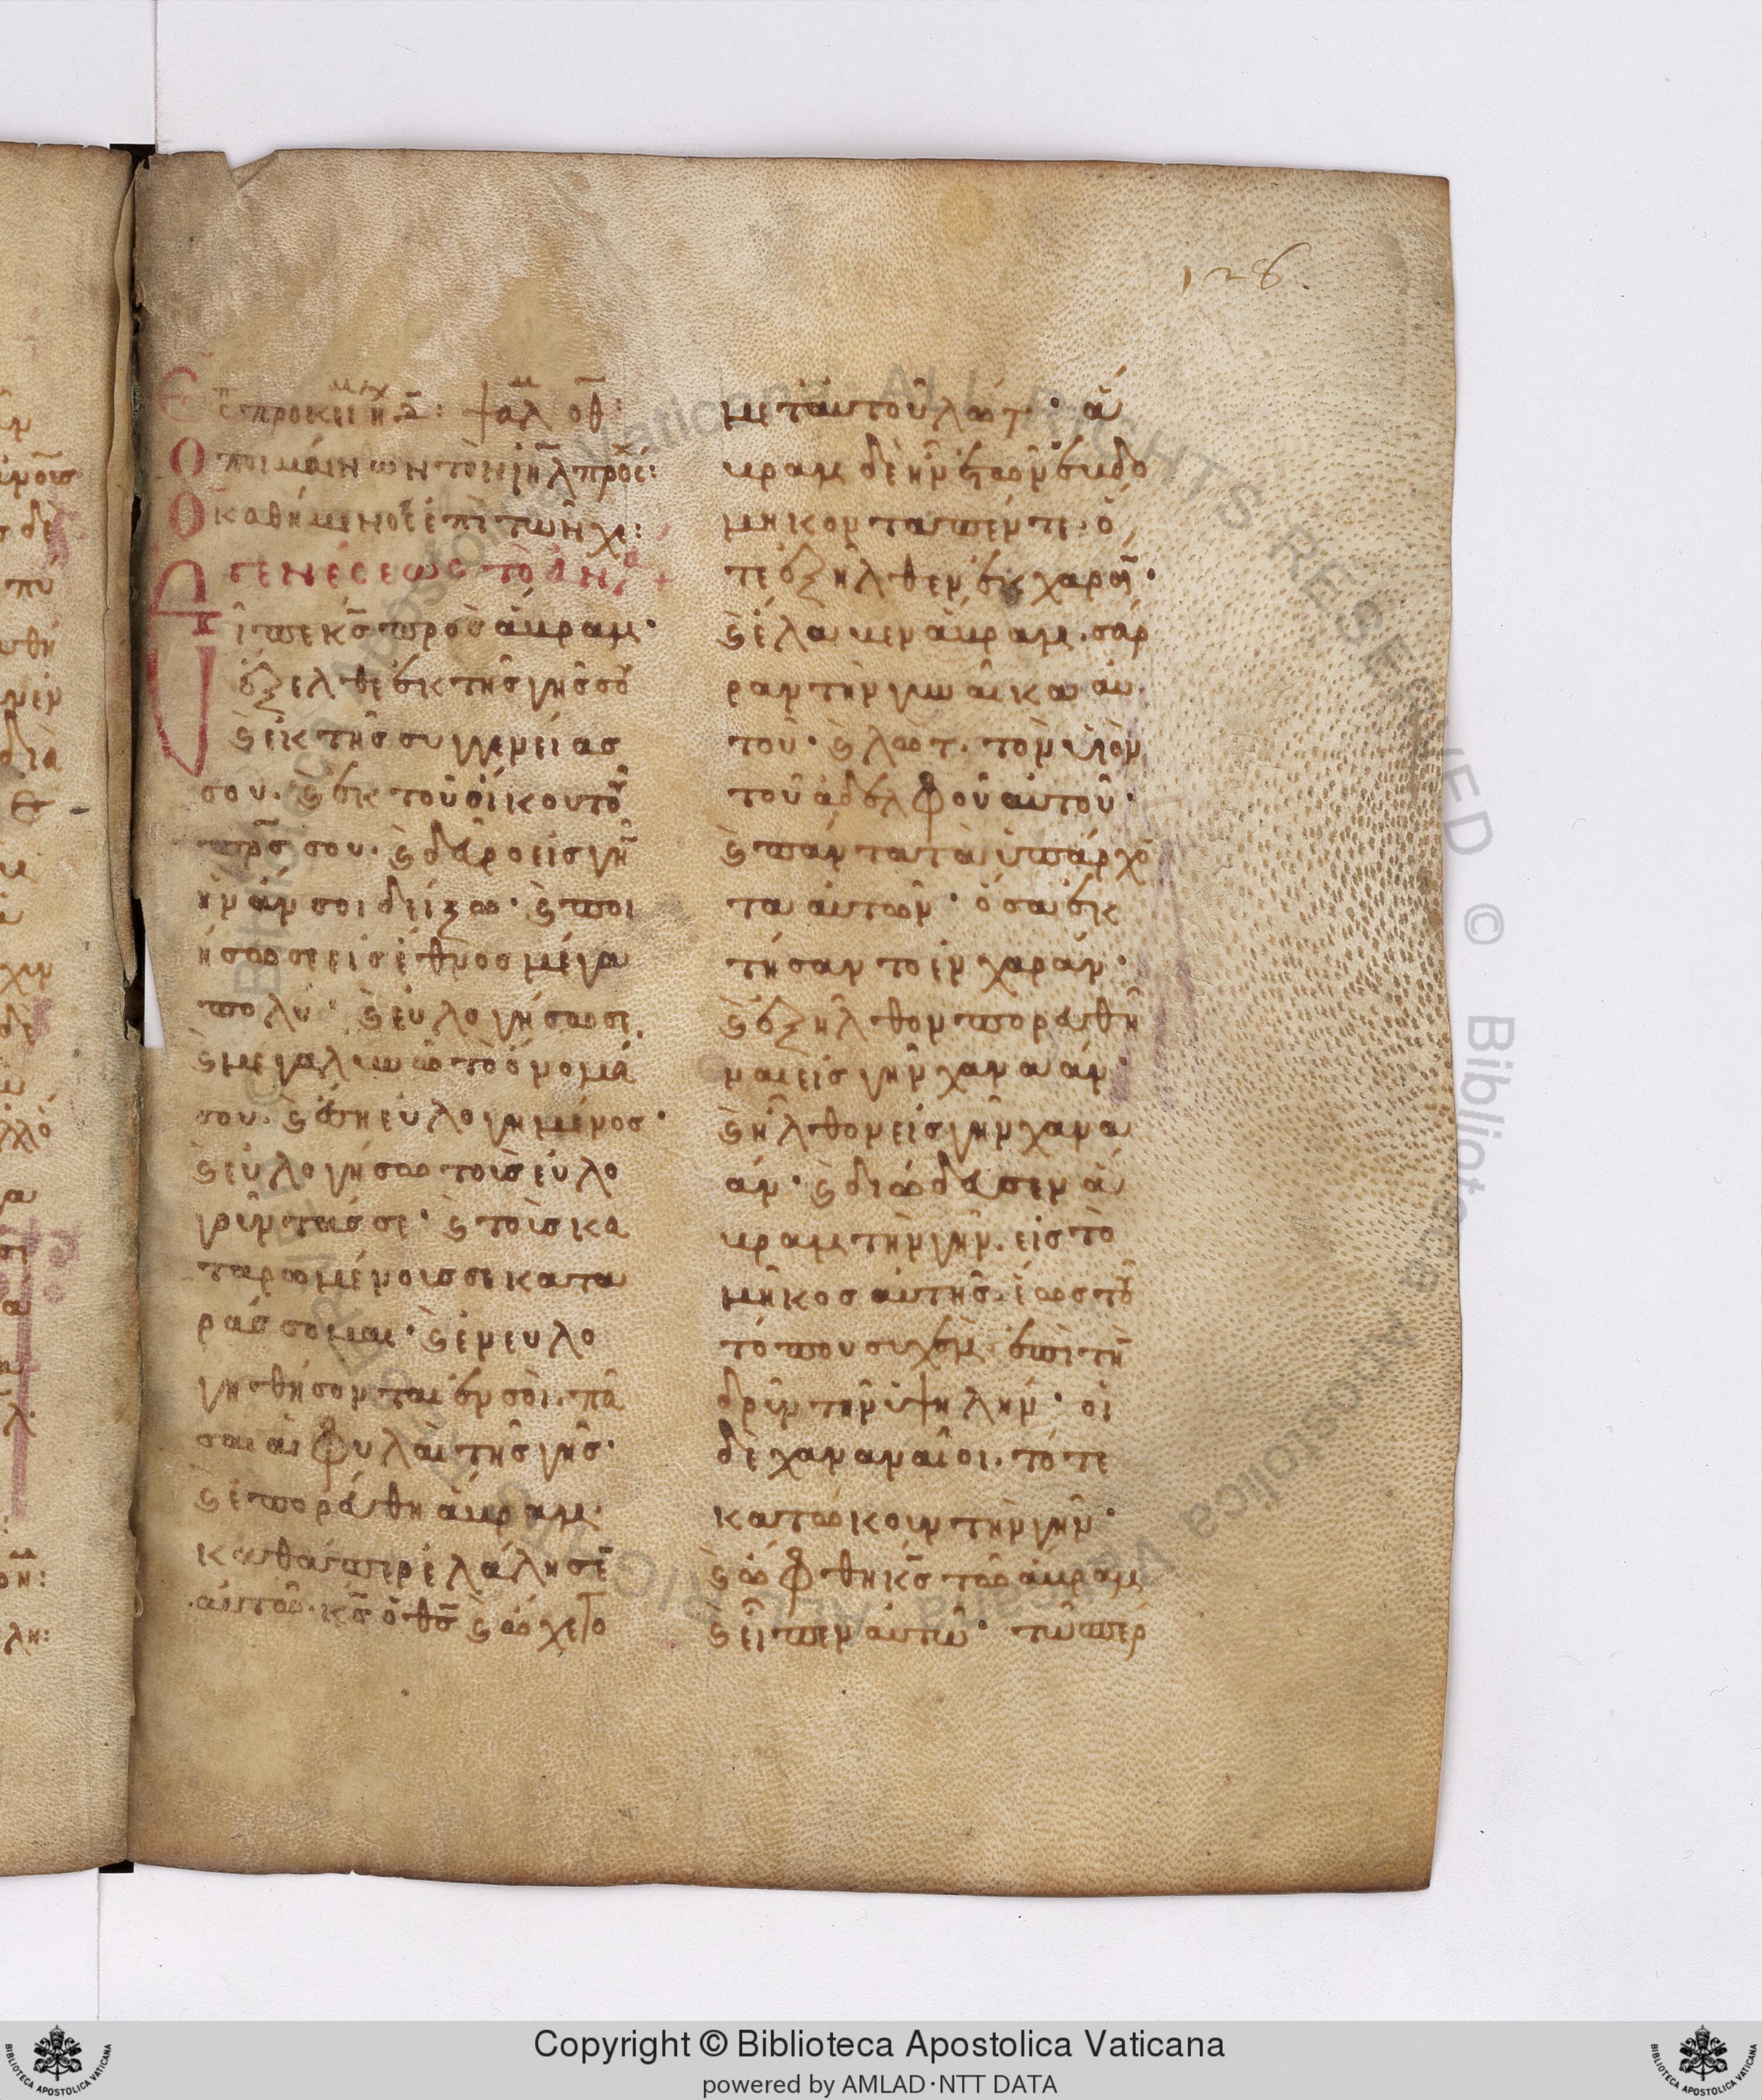 128
Ἑσπρ προκείμ ἦχ δ: ψαλ οθ:
Ὁ ποιμαίνων τὸν ἰηλ πρόσ:
Ὁ καθήμενος ἐπὶ τῶν χε:
Γενέσεως τὸ ἀν
Εἶπε κς πρὸς ἅβραμ·
ἔξελθε ἐκ τῆς γῆς σου
ϗ ἐκ τῆς συγγενείας
σου· ϗ ἐκ τοῦ οἴκου τοῦ
πρς σου· ϗ δεῦρο εἰς γῆν
ἣν ἄν σοι δείξω· ϗ ποι
ήσω σε εἰς ἔθνος μέγα
πολύ· ϗ εὐλογήσω σε,
ϗ μεγαλυνῶ τὸ ὄνομά
σου· ϗ ἔση εὐλογημένος·
ϗ εὐλογήσω τοὺς εὐλο
γοῦντάς σε· ϗ τοὺς κα
ταρωμένους σε κατα
ράσσομαι· ϗ ἐνευλο
γηθήσονται ἐν σοὶ πᾶ
σαι αἱ φυλαὶ τῆς γῆς·
ϗ ἐπορεύθη ἅβραμ
καθάπερ ἐλάλησεν
αὐτῶ κς ὁ θς ϗ ὤχετο
μετ᾽ αὐτοῦ λώτ· ἅ
βραμ δὲ ἦν ἐτῶν ἑβδο
μήκοντα πέντε· ὅ
τε ἐξῆλθεν ἐκ χαράν·
ϗ ἔλαβεν ἅβραμ σάρ
ραν τὴν γυναῖκα αὐ
τοῦ· ϗ λώτ· τὸν υἱὸν
τοῦ ἀδελφοῦ αὐτοῦ·
ϗ πάντα τὰ ὑπάρχον
τα αὐτῶν· ὅσα ἐκ
τήσαντο ἐν χαράν·
ϗ ἐξῆλθον πορευθῆ
ναι εἰς γῆν χαναάν·
ϗ ἦλθον εἰς γῆν χανα
άν· ϗ διώδευσεν ἅ
βραμ τὴν γῆν εἰς τὸ
μῆκος αὐτῆς· ἕως τοῦ
τόπου συχέμ· ἐπὶ τὴν
δρῦν τὴν ὑψηλήν· οἱ
δὲ χαναναῖοι τότε
κατώκουν τὴν γῆν·
ϗ ὤφθη κς τῶ ἅβραμ
ϗ εἶπεν αὐτῶ· τῶ σπέρ
Copyright © Biblioteca Apostolica Vaticana
powered by AMLAD·NTT DATA